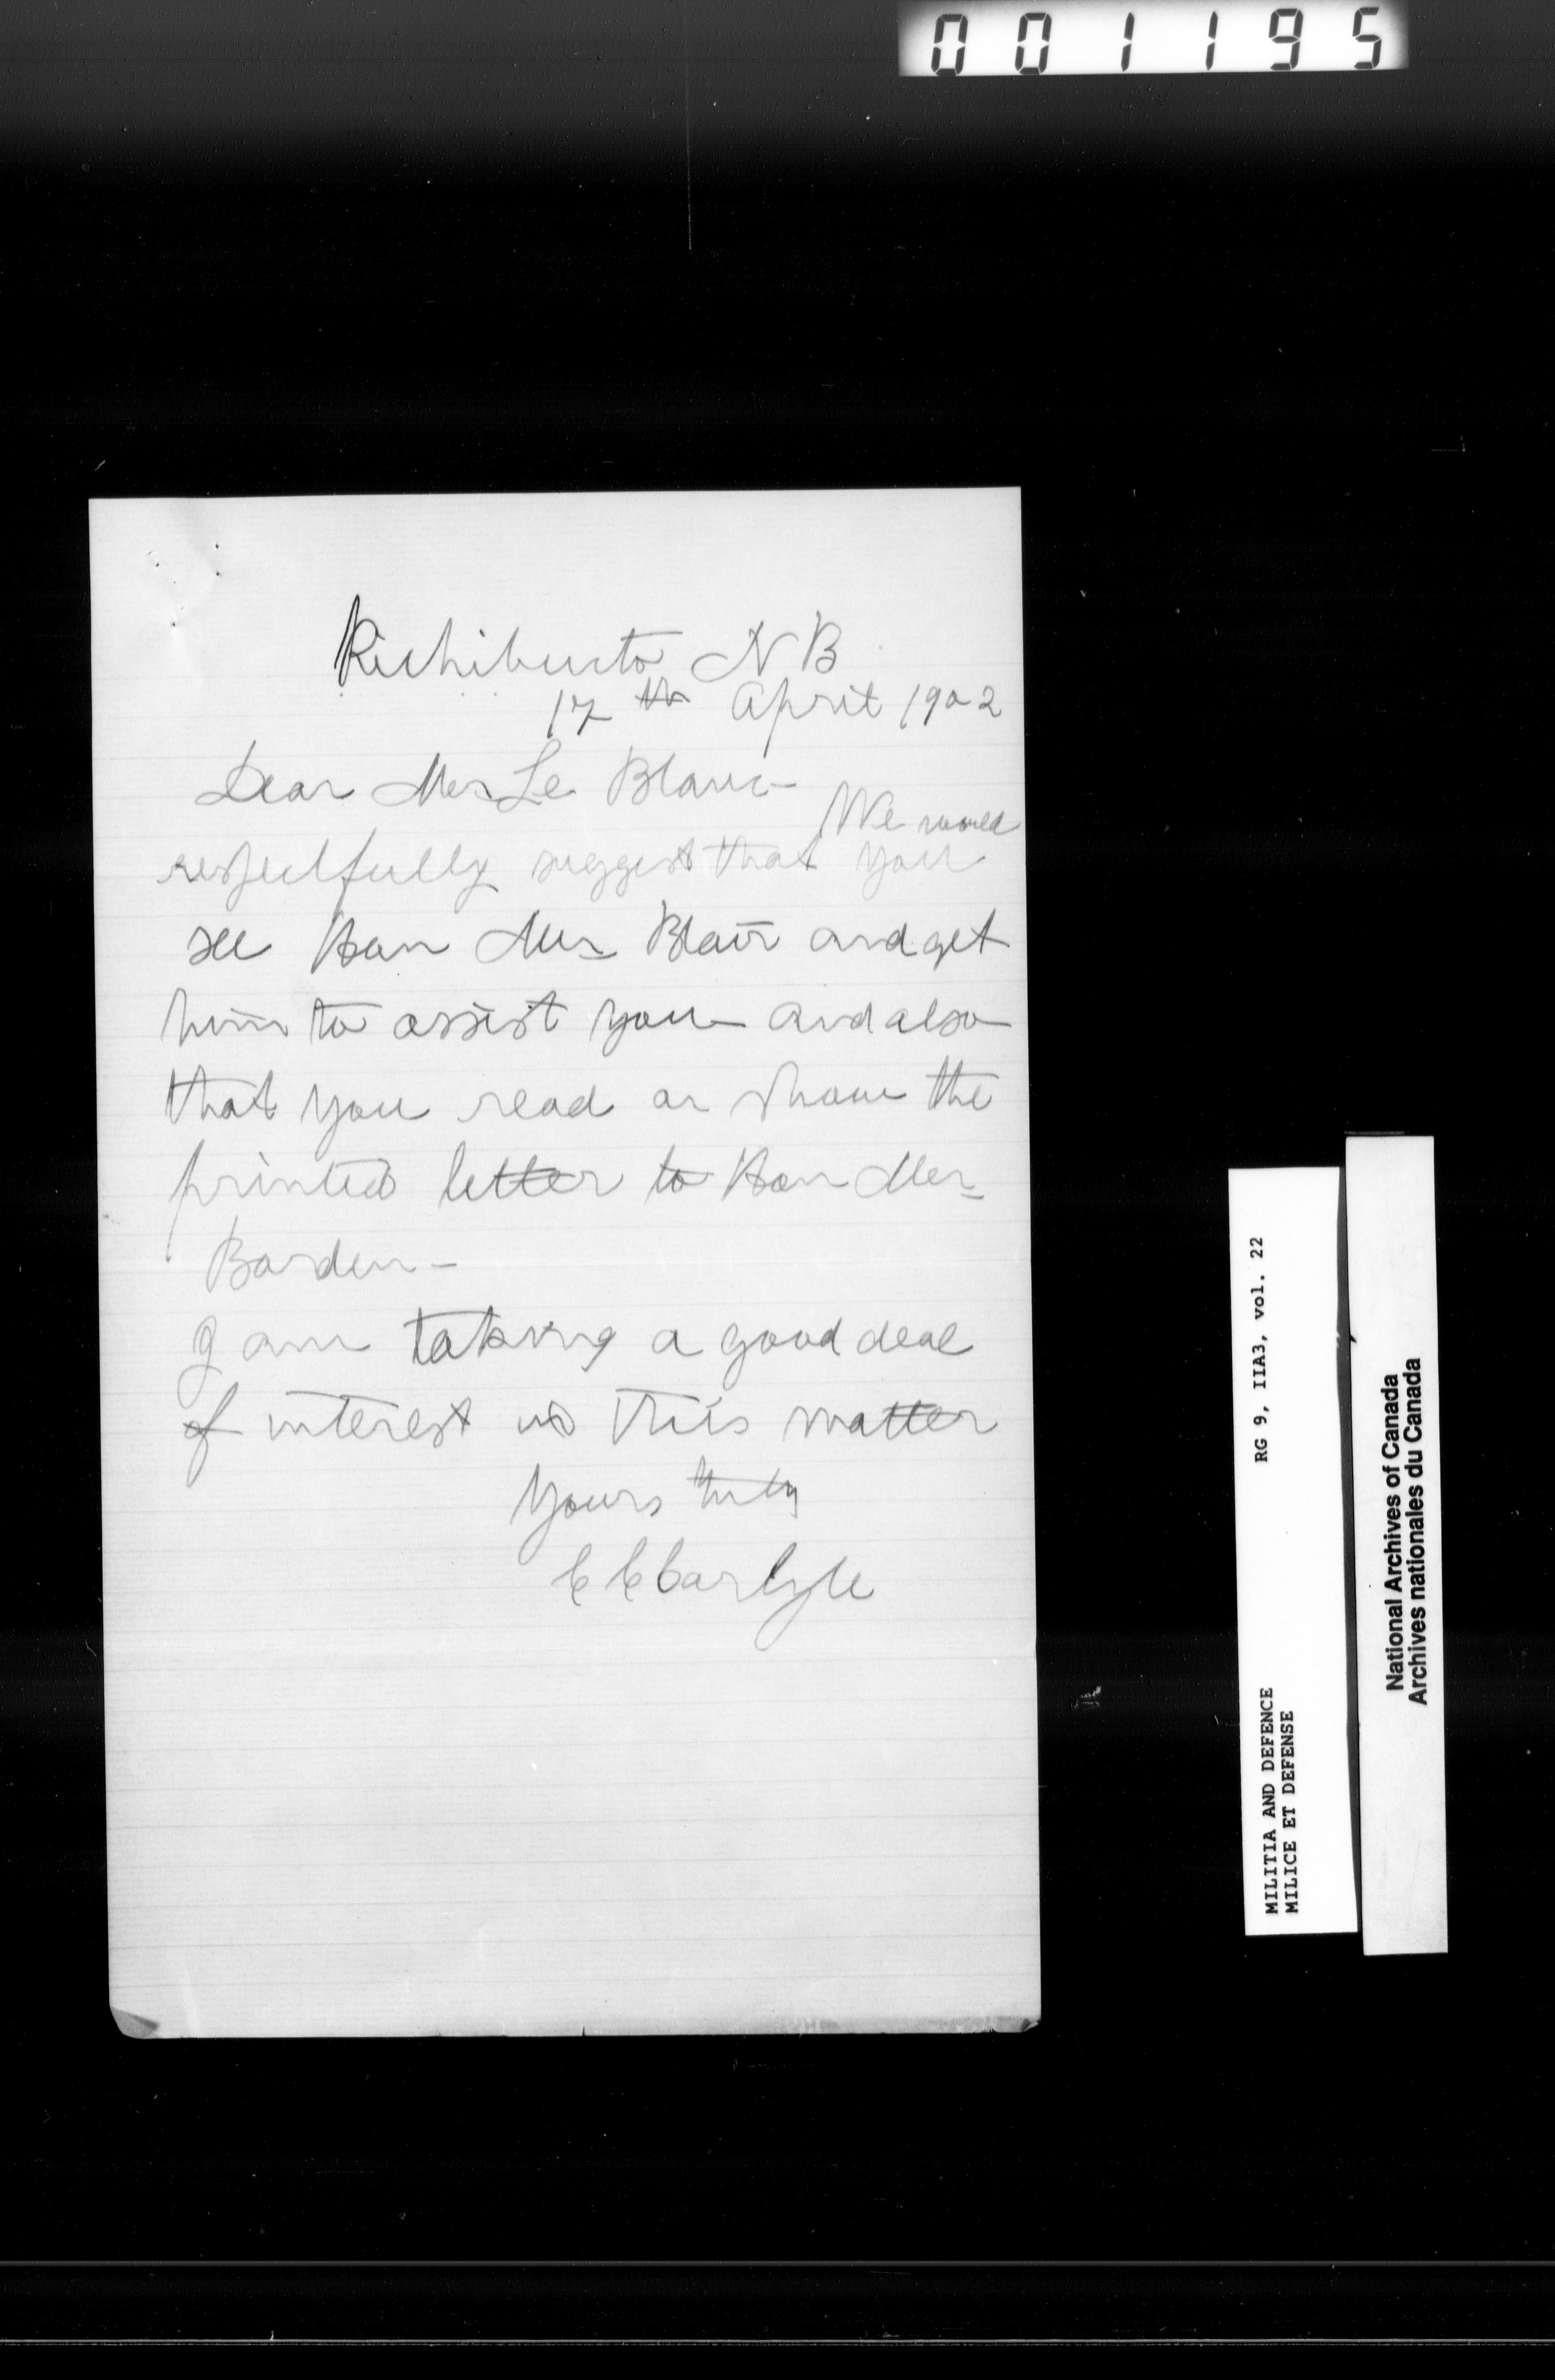 001195
Richibucto N B
17th April 1902
Dear Mr Le Blanc -
We would
respectfully suggest that you
see Hon Mr Blair and get
him to assist you and also
that you read or show the
printed letter to Hon Mr
Borden -
I am taking a good deal
of interest in this matter
Yours truly
C C Carlyle
RG 9, IIA3, vol. 22
MILITIA AND DEFENCE
MILICE ET DEFENSE
National Archives of Canada
Archives nationales du Canada